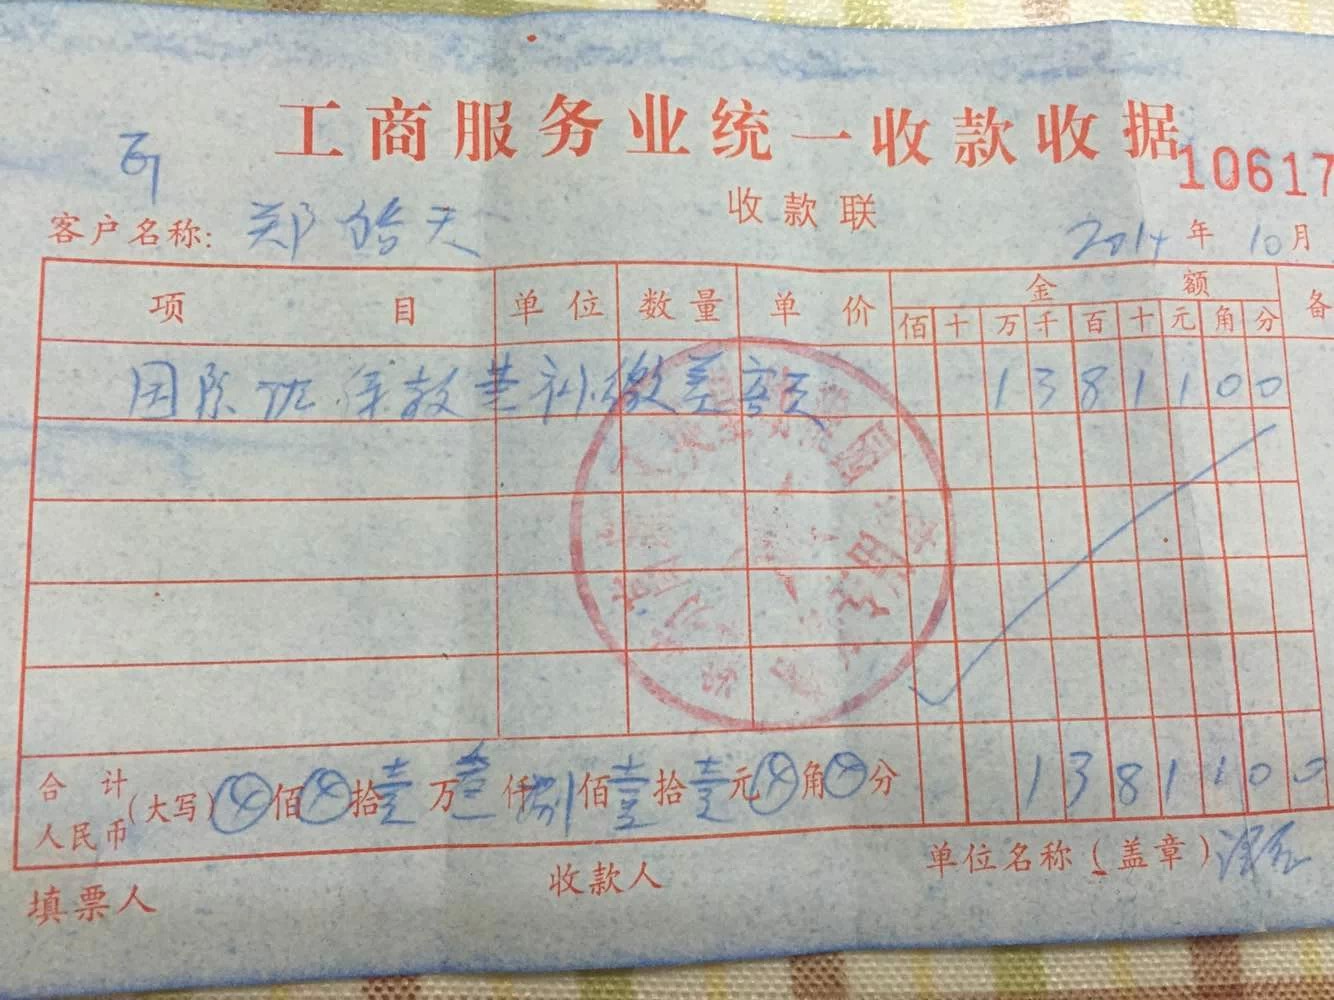 工商服务业统一收款收据
10617
收款联
客户名称: 郑皓天 2014年10月
项目 单位 数量 单价 金额 备
佰 十 万 千 百 十 元 角 分
团队 保教 补缴差额 1 3 8 1 1 0 0
合计人民币(大写) ⊗佰⊗拾壹万叁仟捌佰壹拾壹元⊗角⊗分 1 3 8 1 1 0 0
填票人 收款人 单位名称(盖章)